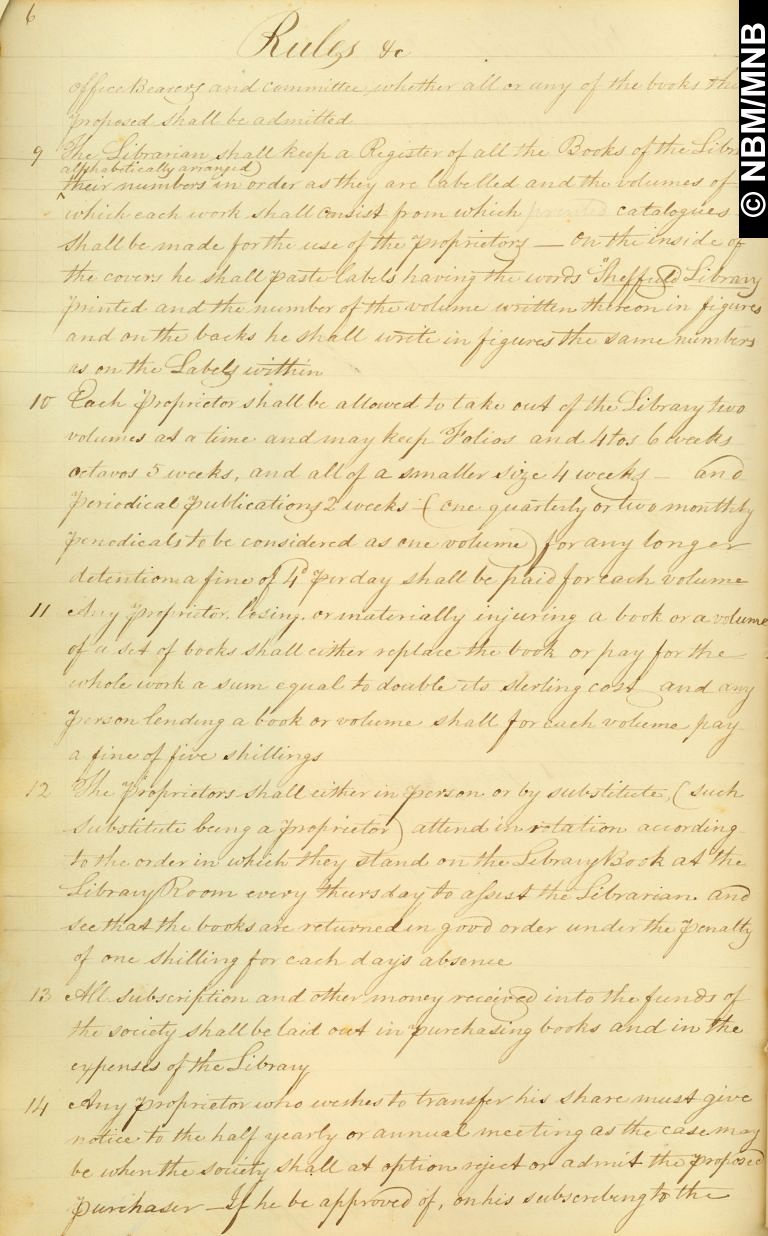 6
Rules &c
Office Bearers and committee, whether all or any of the books
proposed shall be admitted
9 The Librarian shall keep a Register of all the Books of the Libr
alphabetically arranged
^ their numbers in order as they are labelled and the volumes of
which each work shall consist from which printed catalogues
shall be made for the use of the proprietors — on the inside of
the covers he shall paste labels having the words "Sheffield Library
printed and the number of the volume written thereon in figures
and on the backs he shall write in figures the same numbers
as on the Labels within
10 Each proprietor shall be allowed to take out of the Library two
volumes at a time and may keep Folios and 4tos 6 weeks
octavos 5 weeks, and all of a smaller size 4 weeks — and
periodical publications 2 weeks (one quarterly or two monthly
periodicals to be considered as one volume) for any longer
detention a fine of 4d per day shall be paid for each volume
11 Any proprietor, losing, or materially injuring a book or a volume
of a set of books shall either replace the book or pay for the
whole work a sum equal to double its sterling cost and any
person lending a book or volume shall for each volume pay
a fine of five shillings
12 The proprietors shall either in person or by substitute, (such
substitute being a proprietor) attend in rotation according
to the order in which they stand on the Library Book at the
Library Room every thursday to assist the Librarian. and
see that the books are returned in good order under the penalty
of one shilling for each days absence
13 All subscription and other money received into the funds of
the society shall be laid out in purchasing books and in the
expenses of the Library
14 Any proprietor who wishes to transfer his share must give
notice to the half yearly or annual meeting as the case may
be when the society shall at option reject or admit the proposed
purchaser — If he be approved of, on his subscribing to the
© NBM/MNB